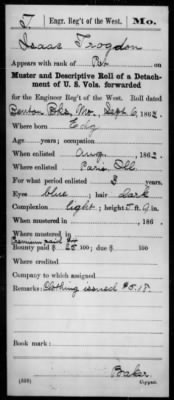 T | Engr. Reg't of the West. | Mo.
Isaac Trogdon
Appears with rank of Pvt
Muster and Descriptive Roll of a Detach-
ment of U. S. Vols. forwarded
for the Engineer Reg't of the West. Roll dated
Benton Bks, Mo., Sept 6, 1862.
Where born Edg
Age years; occupation
When enlisted Aug , 1862.
Where enlisted Paris Ill.
For what period enlisted 3 years.
Eyes blue ; hair dark
Complexion light ; height 5 ft. 9 in.
When mustered in , 186 .
Where mustered in
Premium paid $
Bounty paid $ 25 100; due $ 100
Where credited
Company to which assigned
Remarks: Clothing issued $5.18
Book mark:
Baker
(339) Copyist.